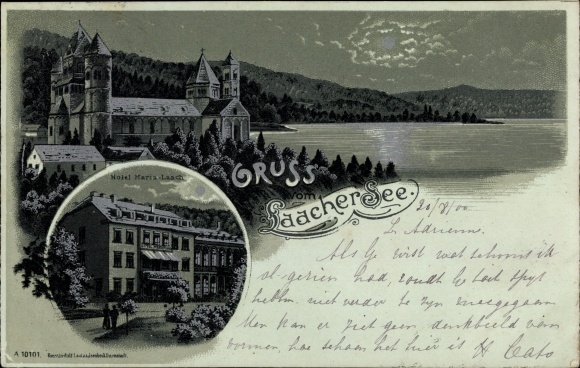 Hotel Maria-Laach
GRUSS
vom
Laacher See.
20/8/00
L. Adrienne.
Als je wist wat schoons ik
al gezien had, zoudt je toch spyt
hebben niet verder te zyn meegegaan
Men kan er ziet geen denkbeeld van
vormen, hoe schoon het hier is
A 10101